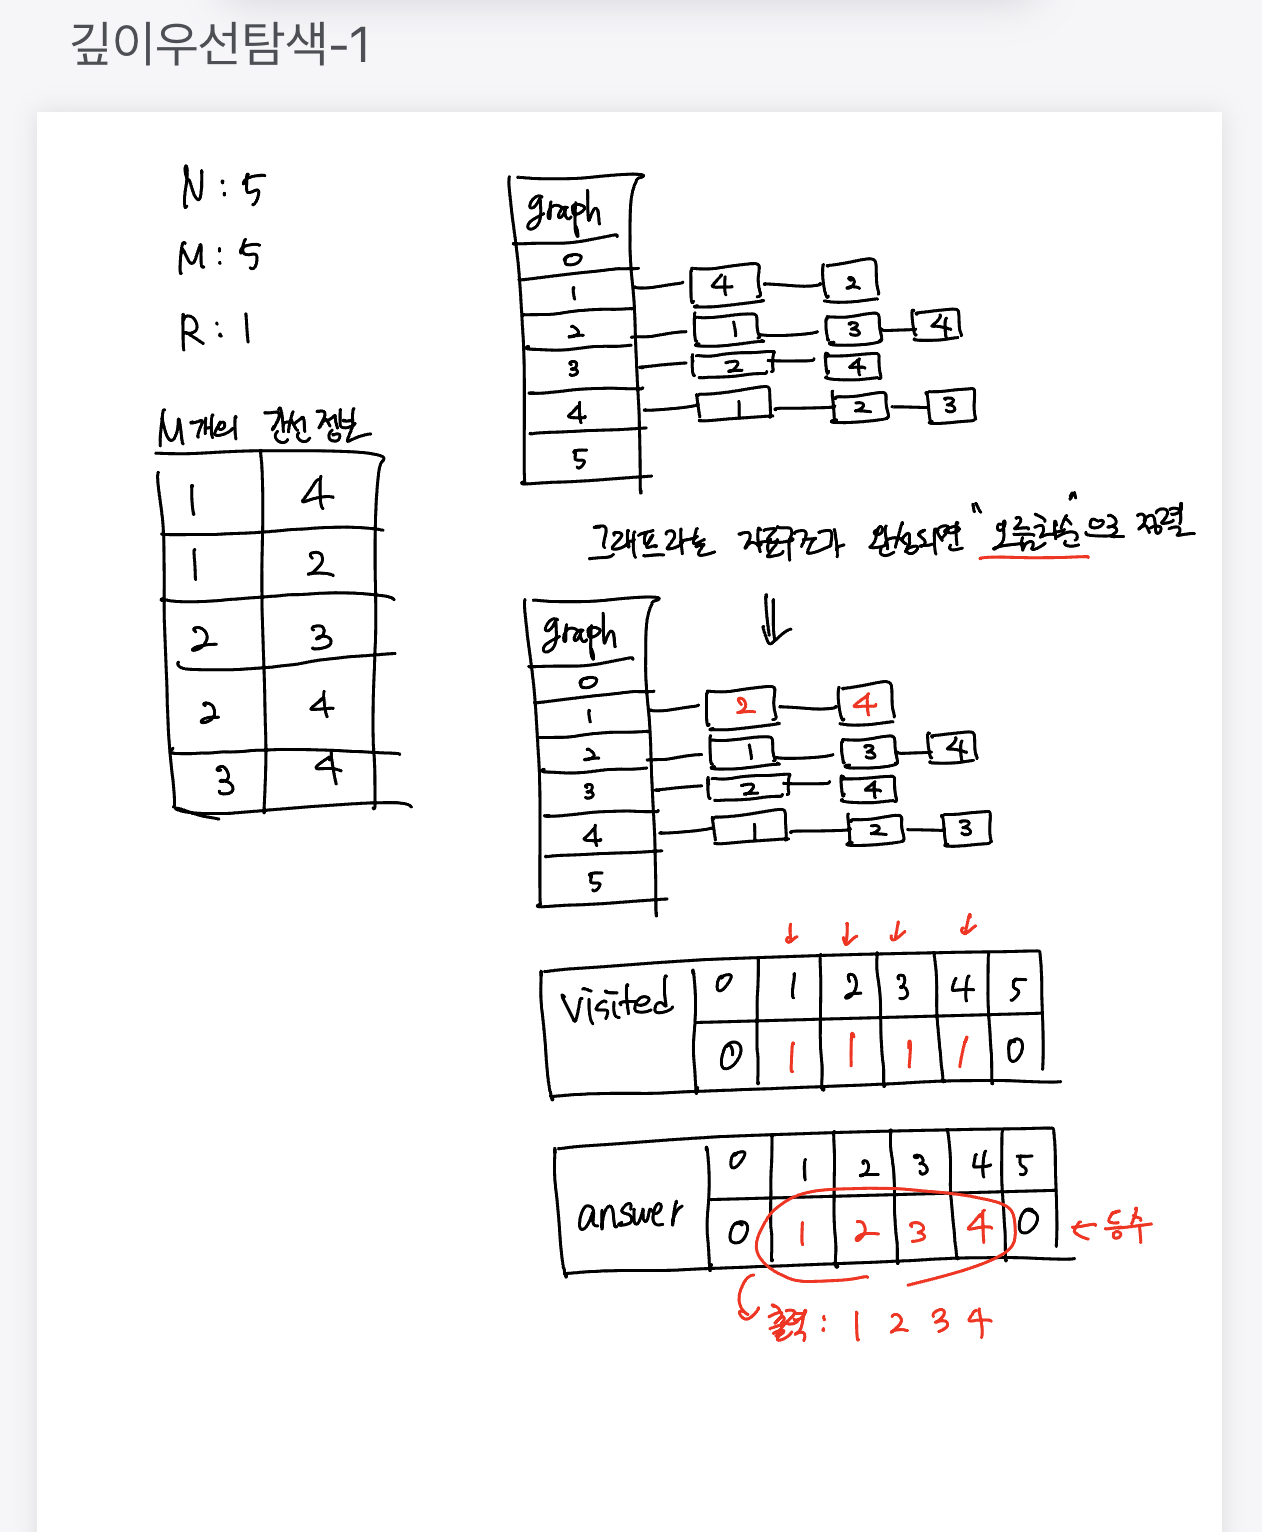 깊이우선탐색-1
N : 5
M : 5
R : 1
M개의 간선 정보
1 4
1 2
2 3
2 4
3 4
graph
0
1 4 2
2 1 3 4
3 2 4
4 1 2 3
5
그래프라는 자료구조가 완성되면 "오름차순"으로 정렬
graph
0
1 2 4
2 1 3 4
3 2 4
4 1 2 3
5
Visited 0 1 2 3 4 5
0 1 1 1 1 0
answer 0 1 2 3 4 5
0 1 2 3 4 0 ← 등수
출력 : 1 2 3 4